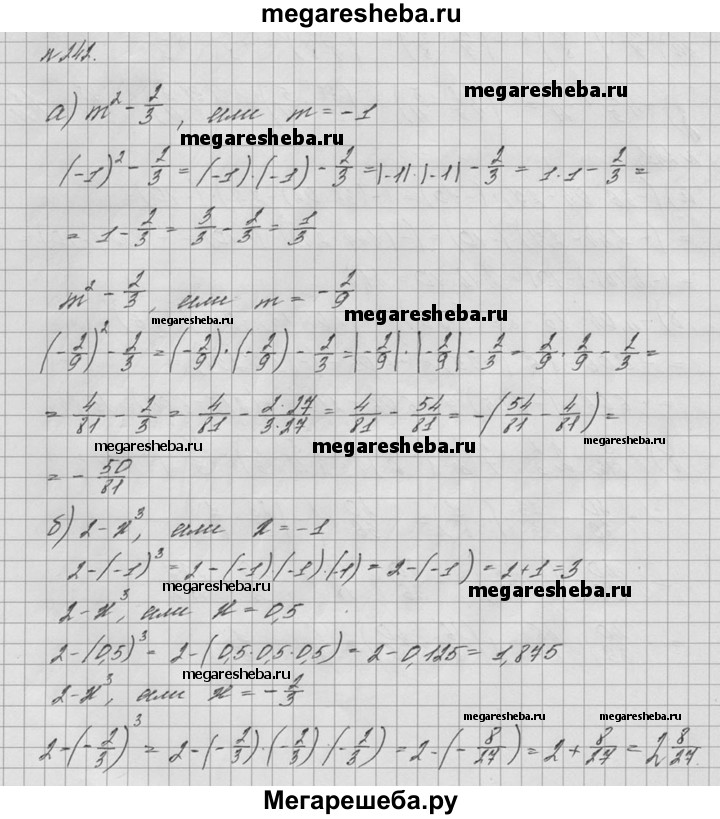 megaresheba.ru
№242.
а) m² - 2/3, или m = -1
megaresheba.ru
megaresheba.ru
(-1)² - 2/3 = (-1)·(-1) - 2/3 = |-1|·|-1| - 2/3 = 1·1 - 2/3 =
= 1 - 2/3 = 3/3 - 2/3 = 1/3
m² - 2/3, или m = -2/9
megaresheba.ru
megaresheba.ru
(-2/9)² - 2/3 = (-2/9)·(-2/9) - 2/3 = |-2/9|·|-2/9| - 2/3 = 2/9 · 2/9 - 2/3 =
= 4/81 - 2/3 = 4/81 - 2·27/3·27 = 4/81 - 54/81 = -(54/81 - 4/81) =
megaresheba.ru
megaresheba.ru
megaresheba.ru
= - 50/81
б) 2-x³, или x = -1
2-(-1)³ = 2-(-1)(-1)·(-1) = 2-(-1) = 2+1 = 3
megaresheba.ru
megaresheba.ru
2-x³, или x = 0,5
2-(0,5)³ = 2-(0,5·0,5·0,5) = 2-0,125 = 1,875
megaresheba.ru
2-x³, или x = -2/3
megaresheba.ru
megaresheba.ru
2-(-2/3)³ = 2-(-2/3)·(-2/3)(-2/3) = 2-(-8/27) = 2 + 8/27 = 2 8/27.
megaresheba.ru
Мегарешеба.ру